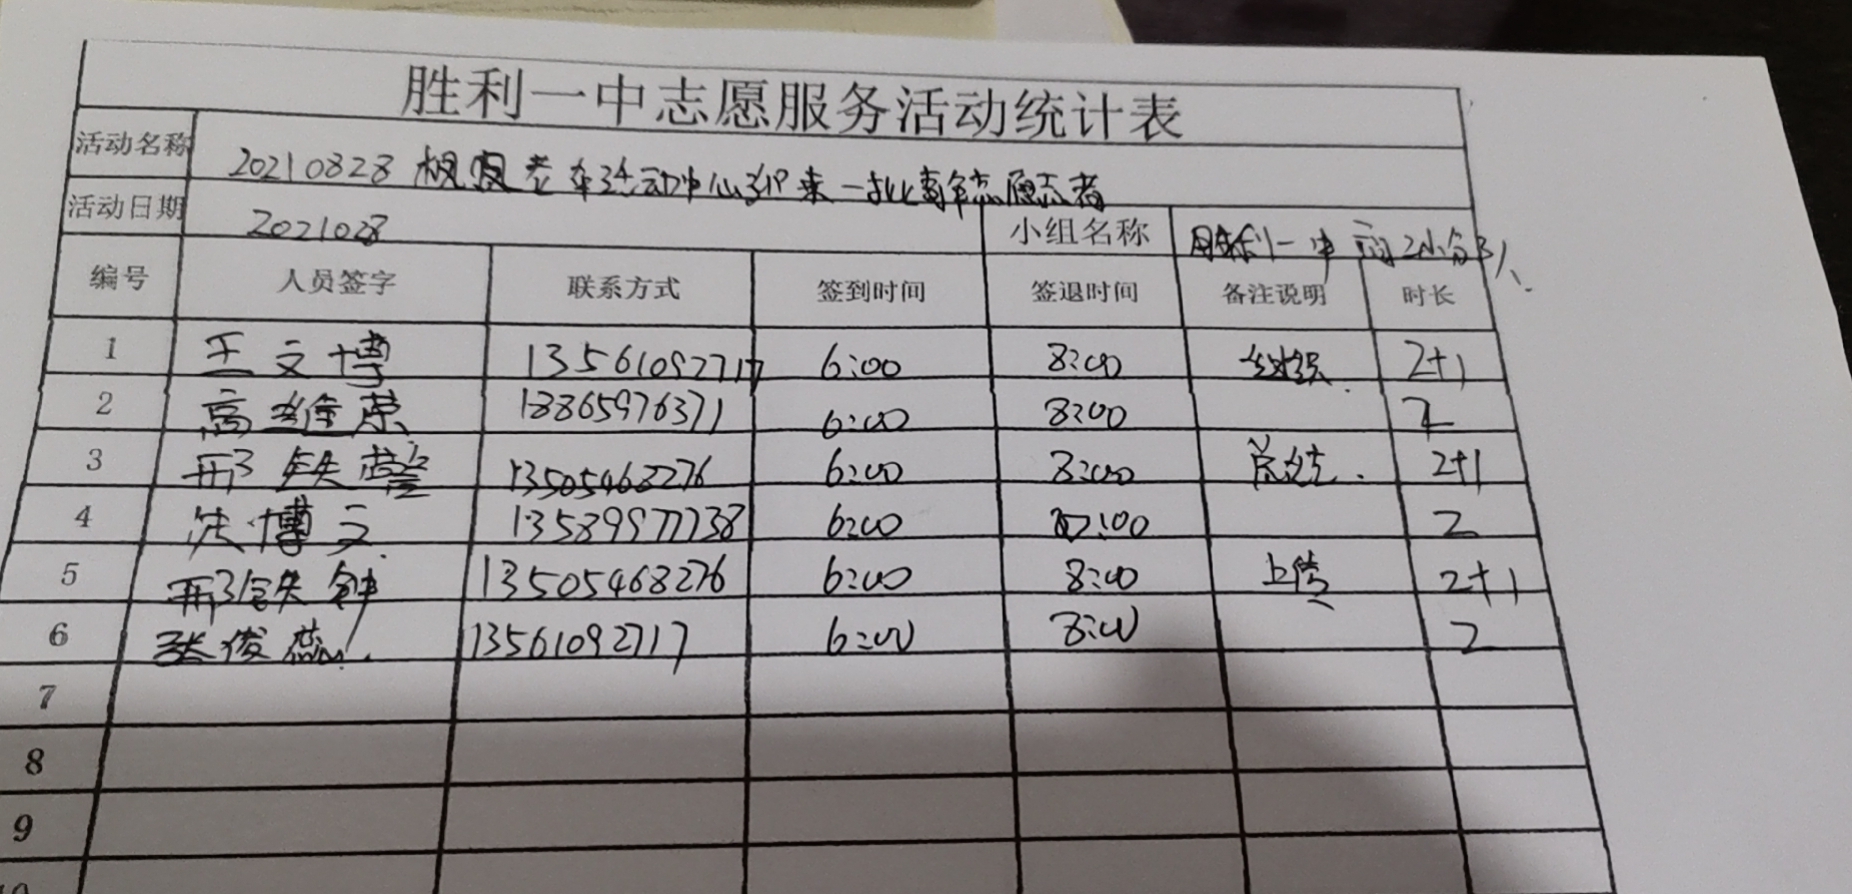 胜利一中志愿服务活动统计表
活动名称 20210828 枫 老年活动中心 来一批青年志愿者
活动日期 2021028 小组名称 胜利一中
编号 人员签字 联系方式 签到时间 签退时间 备注说明 时长
1 王文博 13561092717 6:00 8:00 组织 2+1
2 高雅荣 18865976371 6:00 8:00 2
3 邢铁警 13505468276 6:00 8:00 总结. 2+1
4 博文 13589977738 6:00 :00 2
5 邢铁钟 13505468276 6:00 8:00 上传 2+1
6 张俊蕊 13561092717 6:00 8:00 2
7
8
9